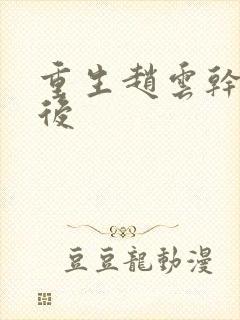 重生趙雲幹
後
豆豆龍動漫